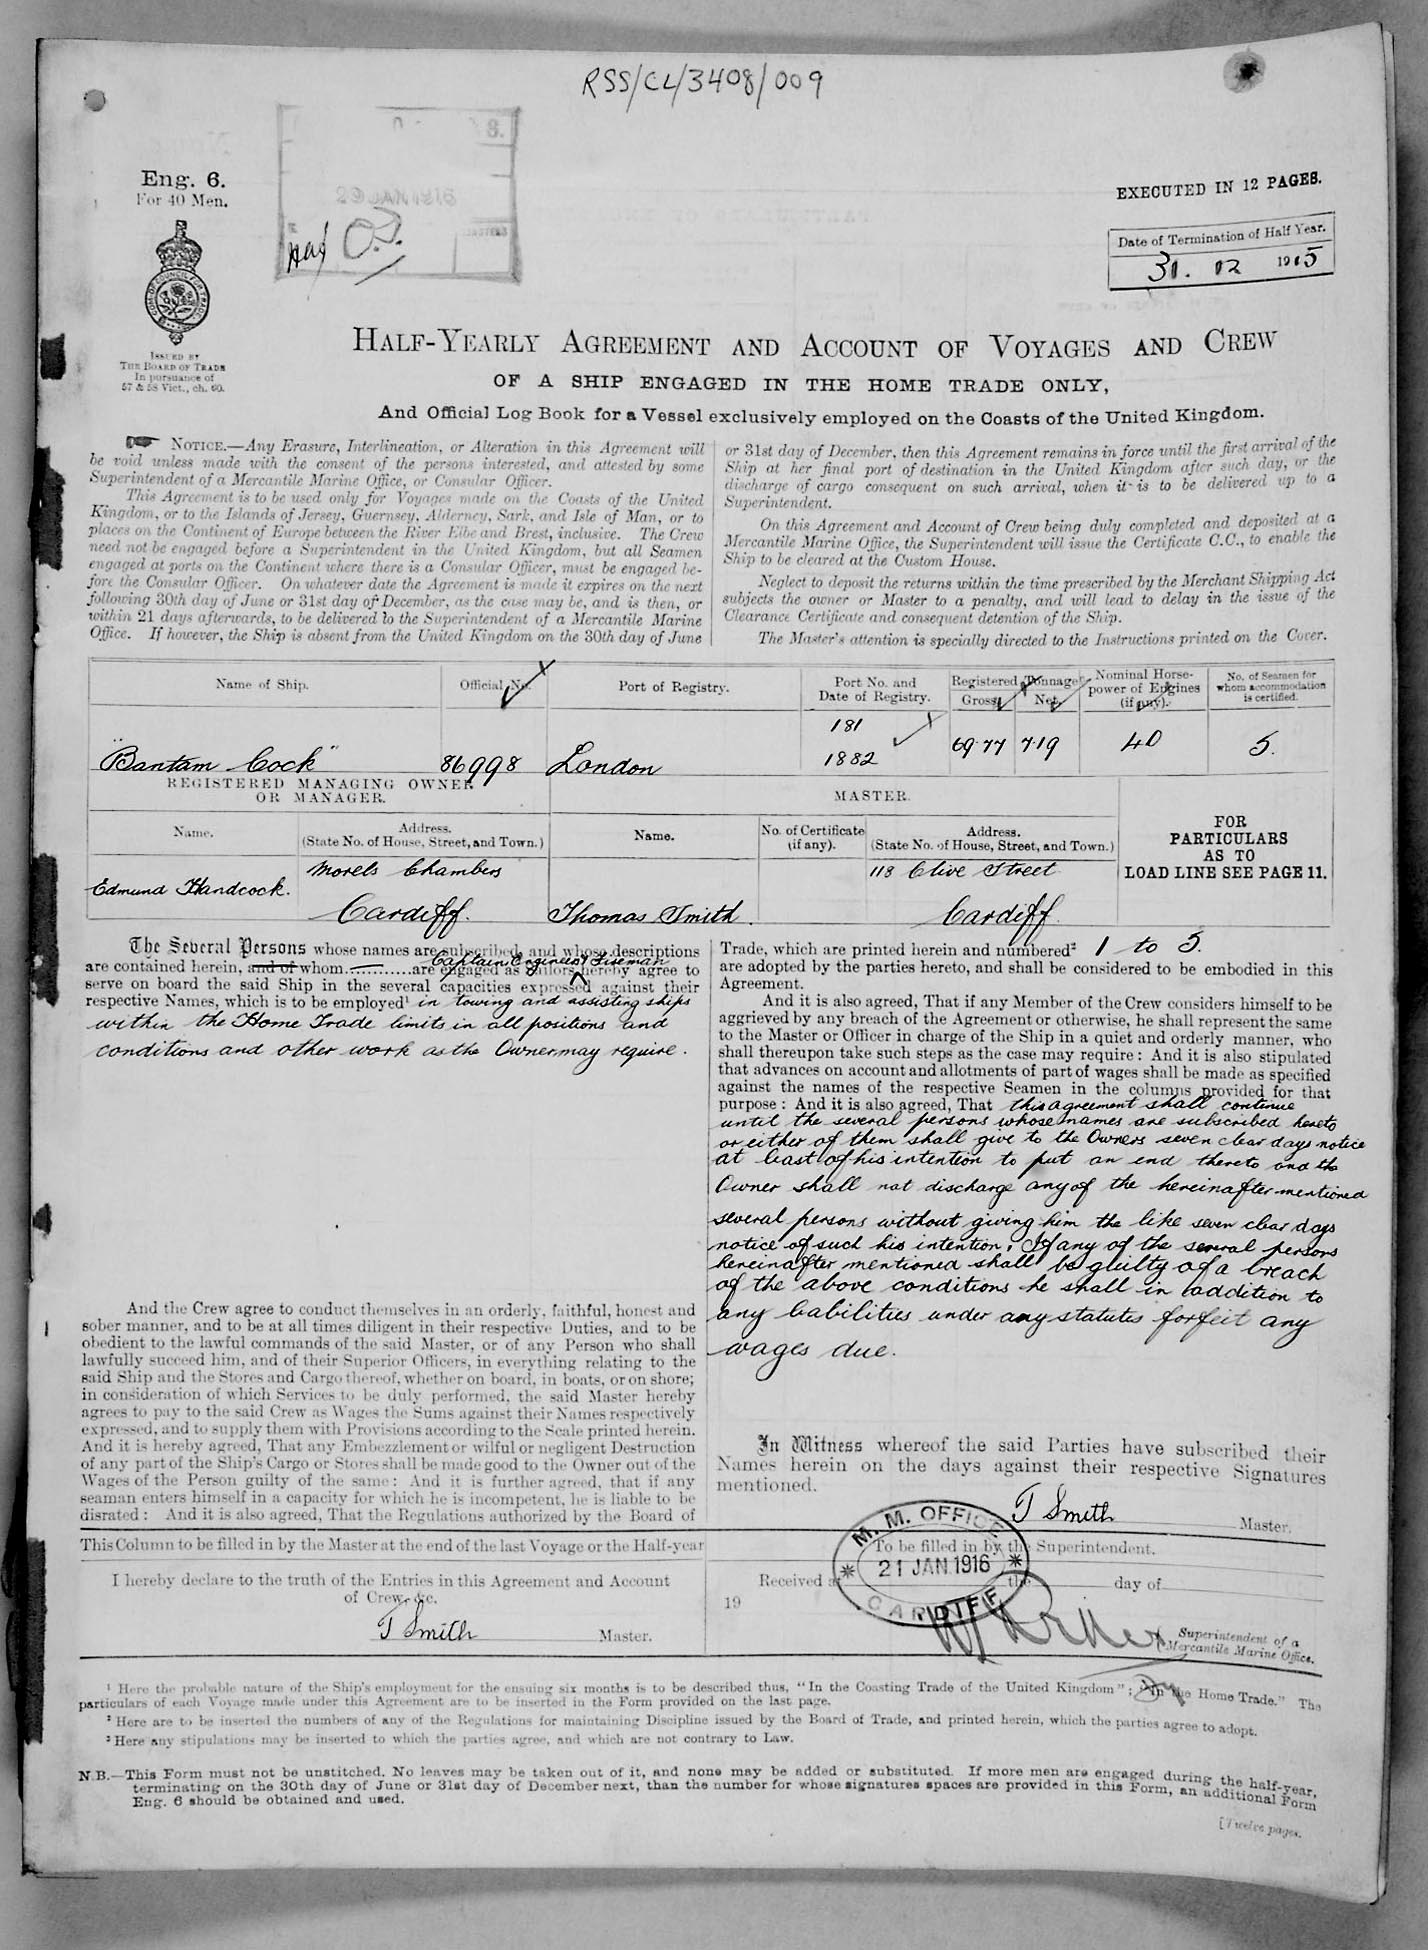 RSS/CL/3408/009
Eng. 6.
For 40 Men.
EXECUTED IN 12 PAGES.
Date of Termination of Half Year.
31. 12 1915
ISSUED BY
THE BOARD OF TRADE
In pursuance of
57 & 58 Vict., ch. 60.
HALF-YEARLY AGREEMENT AND ACCOUNT OF VOYAGES AND CREW
OF A SHIP ENGAGED IN THE HOME TRADE ONLY,
And Official Log Book for a Vessel exclusively employed on the Coasts of the United Kingdom.
NOTICE.—Any Erasure, Interlineation, or Alteration in this Agreement will
be void unless made with the consent of the persons interested, and attested by some
Superintendent of a Mercantile Marine Office, or Consular Officer.
This Agreement is to be used only for Voyages made on the Coasts of the United
Kingdom, or to the Islands of Jersey, Guernsey, Alderney, Sark, and Isle of Man, or to
places on the Continent of Europe between the River Elbe and Brest, inclusive. The Crew
need not be engaged before a Superintendent in the United Kingdom, but all Seamen
engaged at ports on the Continent where there is a Consular Officer, must be engaged be-
fore the Consular Officer. On whatever date the Agreement is made it expires on the next
following 30th day of June or 31st day of December, as the case may be, and is then, or
within 21 days afterwards, to be delivered to the Superintendent of a Mercantile Marine
Office. If however, the Ship is absent from the United Kingdom on the 30th day of June
or 31st day of December, then this Agreement remains in force until the first arrival of the
Ship at her final port of destination in the United Kingdom after such day, or the
discharge of cargo consequent on such arrival, when it is to be delivered up to a
Superintendent.
On this Agreement and Account of Crew being duly completed and deposited at a
Mercantile Marine Office, the Superintendent will issue the Certificate C.C., to enable the
Ship to be cleared at the Custom House.
Neglect to deposit the returns within the time prescribed by the Merchant Shipping Act
subjects the owner or Master to a penalty, and will lead to delay in the issue of the
Clearance Certificate and consequent detention of the Ship.
The Master's attention is specially directed to the Instructions printed on the Cover.
Name of Ship.
Official No.
Port of Registry.
Port No. and
Date of Registry.
Registered Tonnage
Gross
Net.
Nominal Horse-
power of Engines
(if any).
No. of Seamen for
whom accommodation
is certified.
"Bantam Cock"
86998
London
181
1882
69.77
7.19
40
5.
REGISTERED MANAGING OWNER
OR MANAGER.
MASTER.
FOR
PARTICULARS
AS TO
LOAD LINE SEE PAGE 11.
Name.
Address.
(State No. of House, Street, and Town.)
Name.
No. of Certificate
(if any).
Address.
(State No. of House, Street, and Town.)
Edmund Handcock.
Morels Chambers
Cardiff.
Thomas Smith.
118 Clive Street
Cardiff
The Several Persons whose names are subscribed, and whose descriptions
Captain Engineer & Fireman
are contained herein, and of whom............are engaged as Sailors, hereby agree to
serve on board the said Ship in the several capacities expressed against their
respective Names, which is to be employed¹ in towing and assisting ships
within the Home Trade limits in all positions and
conditions and other work as the Owner may require.
And the Crew agree to conduct themselves in an orderly, faithful, honest and
sober manner, and to be at all times diligent in their respective Duties, and to be
obedient to the lawful commands of the said Master, or of any Person who shall
lawfully succeed him, and of their Superior Officers, in everything relating to the
said Ship and the Stores and Cargo thereof, whether on board, in boats, or on shore;
in consideration of which Services to be duly performed, the said Master hereby
agrees to pay to the said Crew as Wages the Sums against their Names respectively
expressed, and to supply them with Provisions according to the Scale printed herein.
And it is hereby agreed, That any Embezzlement or wilful or negligent Destruction
of any part of the Ship's Cargo or Stores shall be made good to the Owner out of the
Wages of the Person guilty of the same: And it is further agreed, that if any
seaman enters himself in a capacity for which he is incompetent, he is liable to be
disrated: And it is also agreed, That the Regulations authorized by the Board of
Trade, which are printed herein and numbered² 1 to 5.
are adopted by the parties hereto, and shall be considered to be embodied in this
Agreement.
And it is also agreed, That if any Member of the Crew considers himself to be
aggrieved by any breach of the Agreement or otherwise, he shall represent the same
to the Master or Officer in charge of the Ship in a quiet and orderly manner, who
shall thereupon take such steps as the case may require: And it is also stipulated
that advances on account and allotments of part of wages shall be made as specified
against the names of the respective Seamen in the columns provided for that
purpose: And it is also agreed, That this agreement shall continue
until the several persons whose names are subscribed hereto
or either of them shall give to the Owners seven clear days notice
at least of his intention to put an end thereto and the
Owner shall not discharge any of the hereinafter mentioned
several persons without giving him the like seven clear days
notice of such his intention. If any of the several persons
hereinafter mentioned shall be guilty of a breach
of the above conditions he shall in addition to
any liabilities under any statutes forfeit any
wages due.
In Witness whereof the said Parties have subscribed their
Names herein on the days against their respective Signatures
mentioned.
T Smith Master.
This Column to be filled in by the Master at the end of the last Voyage or the Half-year
I hereby declare to the truth of the Entries in this Agreement and Account
of Crew, &c.
T Smith Master.
To be filled in by the Superintendent.
Received at the day of
19
M. M. OFFICE
21 JAN 1916
CARDIFF
Superintendent of a
Mercantile Marine Office.
¹ Here the probable nature of the Ship's employment for the ensuing six months is to be described thus, "In the Coasting Trade of the United Kingdom"; "In the Home Trade." The
particulars of each Voyage made under this Agreement are to be inserted in the Form provided on the last page.
² Here are to be inserted the numbers of any of the Regulations for maintaining Discipline issued by the Board of Trade, and printed herein, which the parties agree to adopt.
³ Here any stipulations may be inserted to which the parties agree, and which are not contrary to Law.
N.B.—This Form must not be unstitched. No leaves may be taken out of it, and none may be added or substituted. If more men are engaged during the half-year,
terminating on the 30th day of June or 31st day of December next, than the number for whose signatures spaces are provided in this Form, an additional Form
Eng. 6 should be obtained and used.
[Twelve pages.